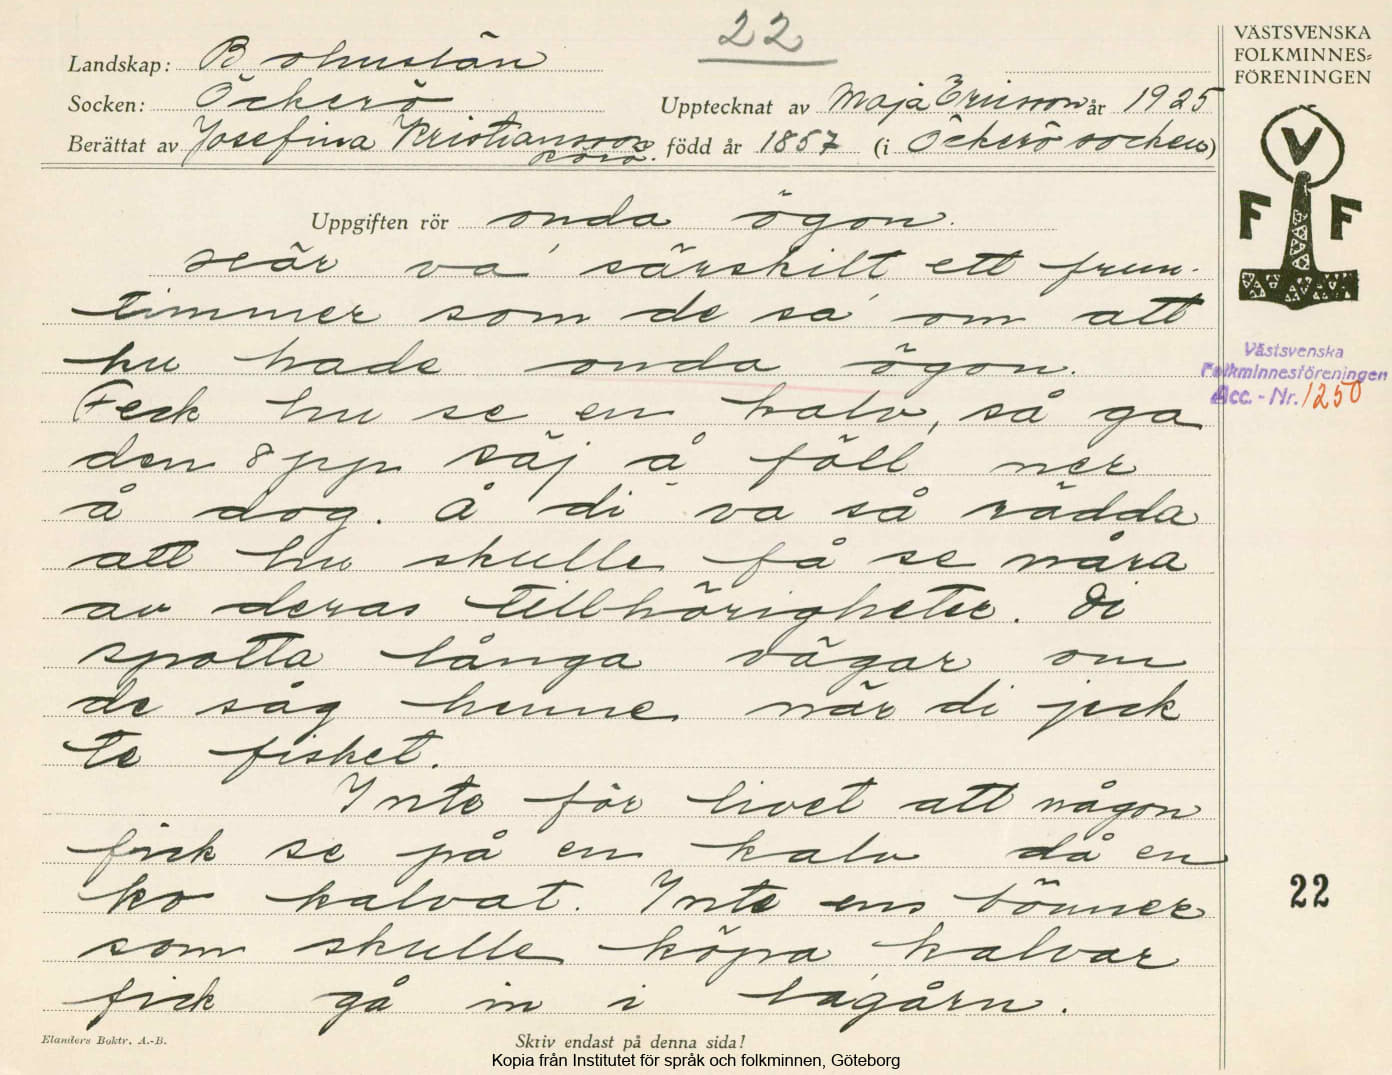 22
Landskap: Bohuslän
Socken: Öckerö
Upptecknat av Maja Ericson år 1925
Berättat av Josefina Kristiansson
född år 1857 (i Öckerö socken)
VÄSTSVENSKA
FOLKMINNES=
FÖRENINGEN
V
F F
Uppgiften rör onda ögon.
va särskilt ett frun-
timmer som de sa om att
hu hade onda ögon.
Feck hu se en kalv, så ga
den opp säj å föll ner
å dog. Å di va så rädda
att hu skulle få se nåra
av deras tillhörigheter. Di
spotta långa vägar om
de såg henne när di jeck
te fisket.
Inte för livet att någon
fick se på en kalv då en
ko kalvat. Inte ens bönner
som skulle köpa kalvar
fick gå in i lagårn.
Västsvenska
Folkminnesföreningen
Acc. - Nr. 1250
22
Elanders Boktr. A.-B.
Skriv endast på denna sida!
Kopia från Institutet för språk och folkminnen, Göteborg